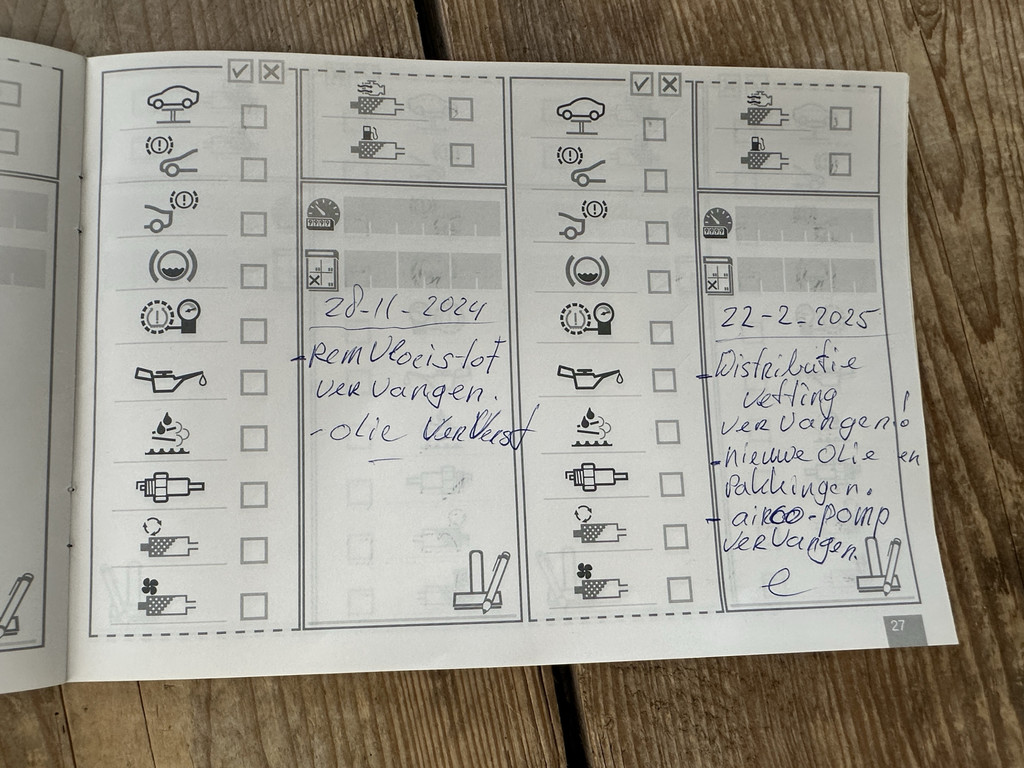 28-11-2024
- Rem Vloeistof
vervangen.
- olie Ververst
22-2-2025
- Distributie
ketting
vervangen!
- nieuwe olie en
Pakkingen.
- airco-pomp
vervangen.
27